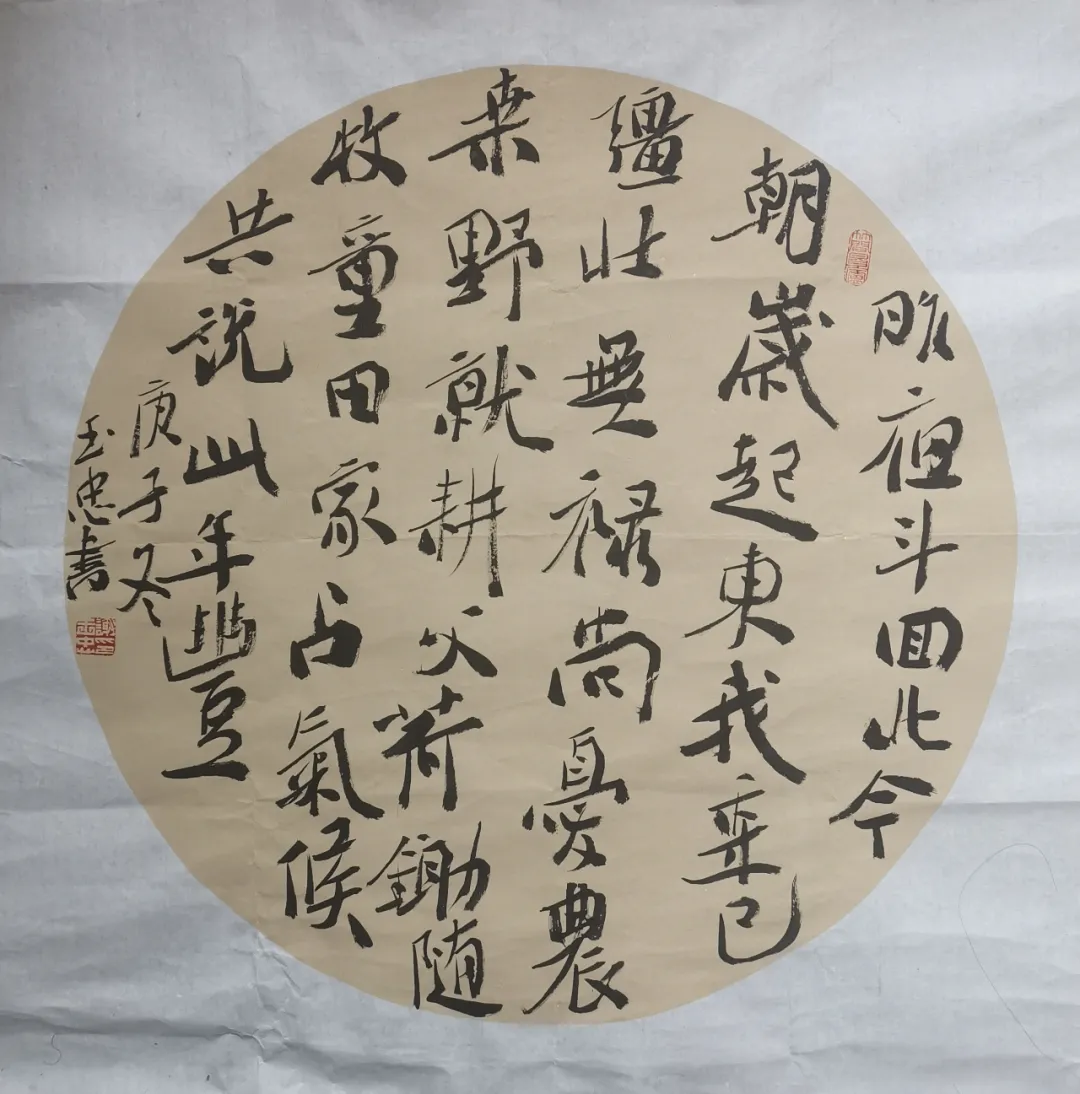 昨夜斗回北今
朝歲起東我年已
彊壯無祿尚憂農
桒野就耕父荷鋤随
牧童田家占氣候
共說此年豐
庚子冬
玉忠書